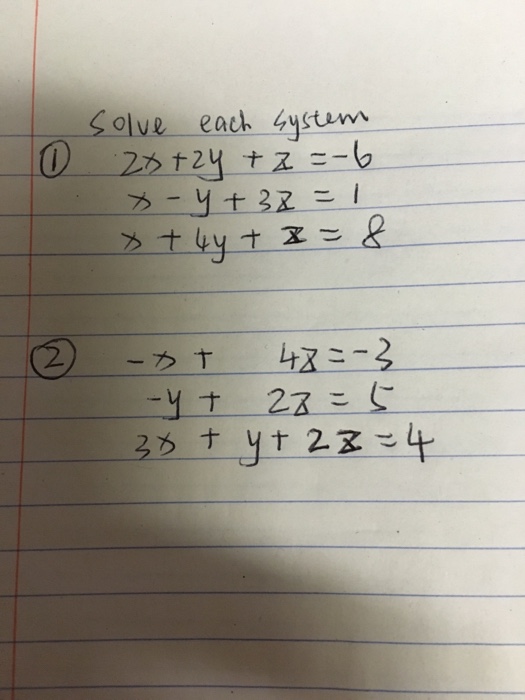 Solve each system
① 2x+2y+z=-6
x-y+3z=1
x+4y+z=8
② -x+ 4z=-3
-y+ 2z=5
3x+y+2z=4